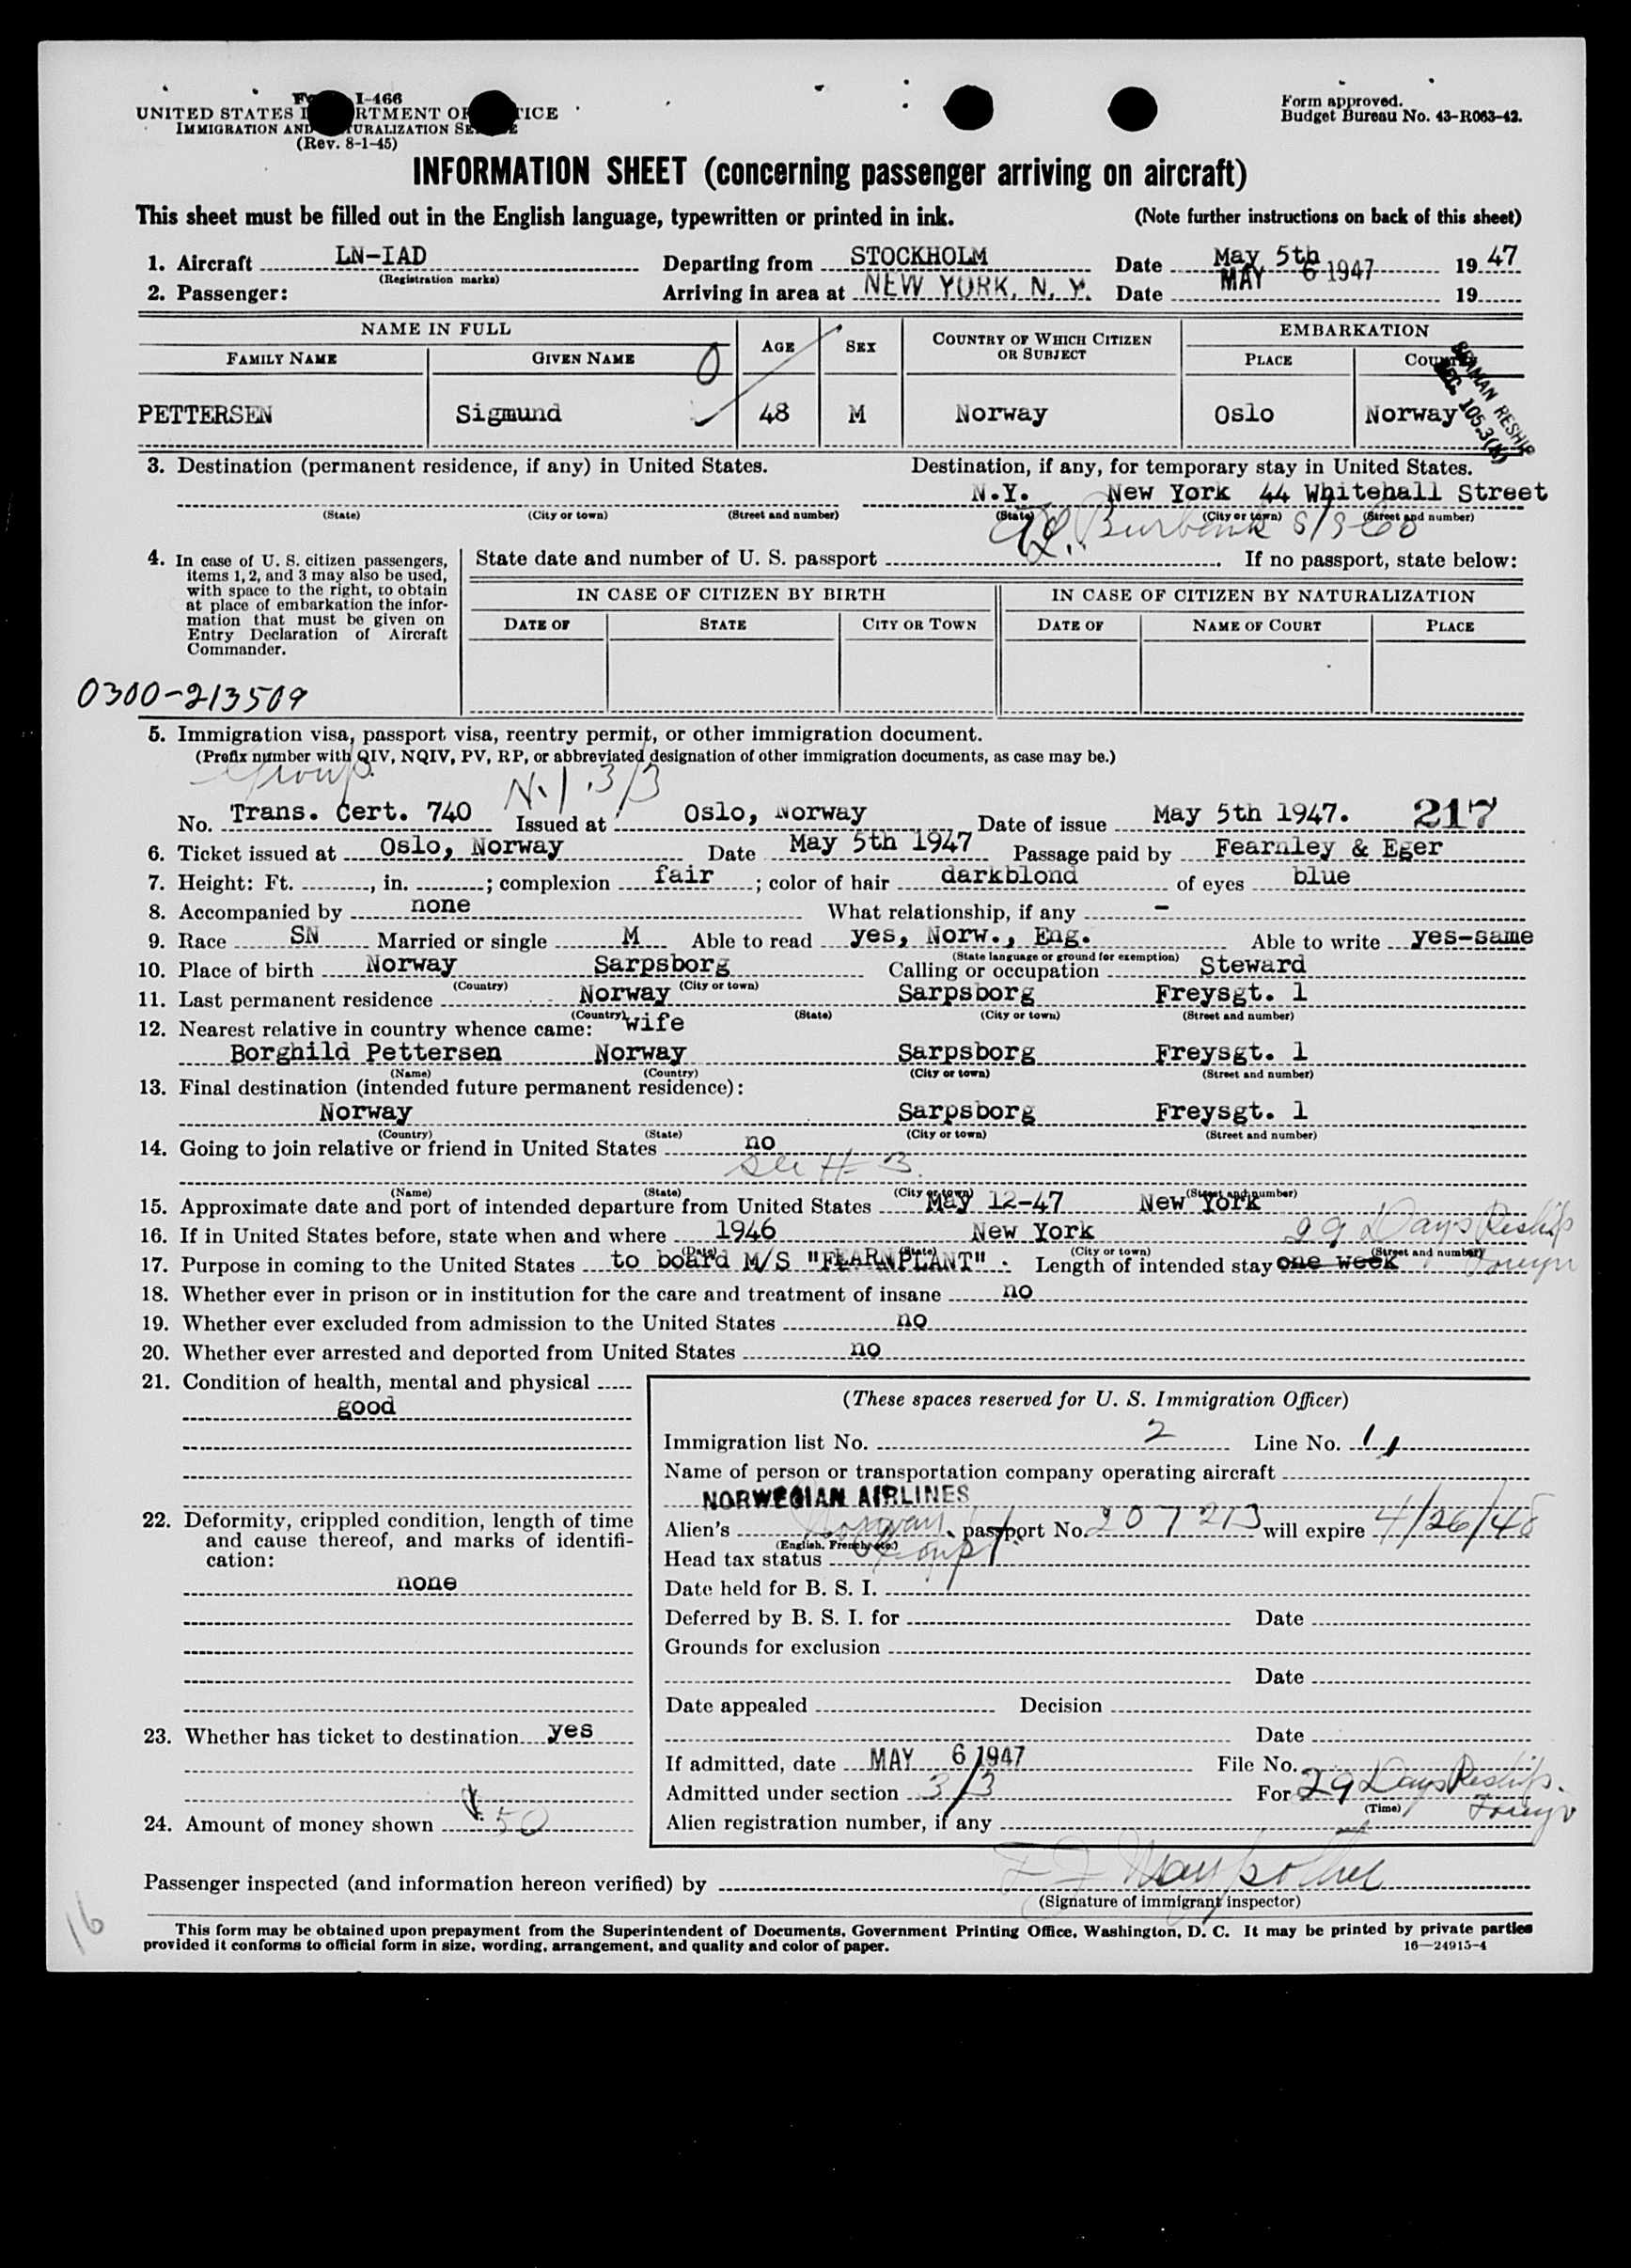 Form I-466
UNITED STATES DEPARTMENT OF JUSTICE
IMMIGRATION AND NATURALIZATION SERVICE
(Rev. 8-1-45)
Form approved.
Budget Bureau No. 43-R063-42.
INFORMATION SHEET (concerning passenger arriving on aircraft)
This sheet must be filled out in the English language, typewritten or printed in ink. (Note further instructions on back of this sheet)
1. Aircraft LN-IAD Departing from STOCKHOLM Date May 5th 1947
(Registration marks)
2. Passenger: Arriving in area at NEW YORK, N. Y. Date MAY 6 1947 19
NAME IN FULL AGE SEX COUNTRY OF WHICH CITIZEN OR SUBJECT EMBARKATION
FAMILY NAME GIVEN NAME PLACE COUNTRY
0
SEAMAN RESHIP
SEC. 105.3(N)
PETTERSEN Sigmund 48 M Norway Oslo Norway
3. Destination (permanent residence, if any) in United States. Destination, if any, for temporary stay in United States.
N.Y. New York 44 Whitehall Street
(State) (City or town) (Street and number) (State) (City or town) (Street and number)
Burbank S/S Co
4. In case of U. S. citizen passengers, items 1, 2, and 3 may also be used, with space to the right, to obtain at place of embarkation the information that must be given on Entry Declaration of Aircraft Commander.
State date and number of U. S. passport If no passport, state below:
IN CASE OF CITIZEN BY BIRTH IN CASE OF CITIZEN BY NATURALIZATION
DATE OF STATE CITY OR TOWN DATE OF NAME OF COURT PLACE
0300-213509
5. Immigration visa, passport visa, reentry permit, or other immigration document.
(Prefix number with QIV, NQIV, PV, RP, or abbreviated designation of other immigration documents, as case may be.)
Group N.I. 3/3
No. Trans. Cert. 740 Issued at Oslo, Norway Date of issue May 5th 1947. 217
6. Ticket issued at Oslo, Norway Date May 5th 1947 Passage paid by Fearnley & Eger
7. Height: Ft. , in. ; complexion fair ; color of hair darkblond of eyes blue
8. Accompanied by none What relationship, if any -
9. Race SN Married or single M Able to read yes, Norw., Eng. Able to write yes-same
(State language or ground for exemption)
10. Place of birth Norway Sarpsborg Calling or occupation Steward
(Country) (City or town)
11. Last permanent residence Norway Sarpsborg Freysgt. 1
(Country) (State) (City or town) (Street and number)
12. Nearest relative in country whence came: wife
Borghild Pettersen Norway Sarpsborg Freysgt. 1
(Name) (Country) (City or town) (Street and number)
13. Final destination (intended future permanent residence):
Norway Sarpsborg Freysgt. 1
(Country) (State) (City or town) (Street and number)
14. Going to join relative or friend in United States no
See # 3.
(Name) (State) (City or town) (Street and number)
15. Approximate date and port of intended departure from United States May 12-47 New York
16. If in United States before, state when and where 1946 New York 29 Days Reship
(Date) (State) (City or town) (Street and number)
17. Purpose in coming to the United States to board M/S "FEARNPLANT". Length of intended stay one week Foreign
18. Whether ever in prison or in institution for the care and treatment of insane no
19. Whether ever excluded from admission to the United States no
20. Whether ever arrested and deported from United States no
21. Condition of health, mental and physical
good
(These spaces reserved for U. S. Immigration Officer)
Immigration list No. 2 Line No. 1
Name of person or transportation company operating aircraft
NORWEGIAN AIRLINES
22. Deformity, crippled condition, length of time and cause thereof, and marks of identification:
none
Alien's Norway passport No. 207213 will expire 4/26/48
(English, French, etc.)
Head tax status Group
Date held for B. S. I.
Deferred by B. S. I. for Date
Grounds for exclusion
Date
Date appealed Decision
23. Whether has ticket to destination yes
Date
If admitted, date MAY 6 1947 File No.
Admitted under section 3/3 For 29 Days Reship. Foreign
(Time)
24. Amount of money shown $50
Alien registration number, if any
Passenger inspected (and information hereon verified) by
(Signature of immigrant inspector)
16
This form may be obtained upon prepayment from the Superintendent of Documents, Government Printing Office, Washington, D. C. It may be printed by private parties
provided it conforms to official form in size, wording, arrangement, and quality and color of paper. 16—24915-4